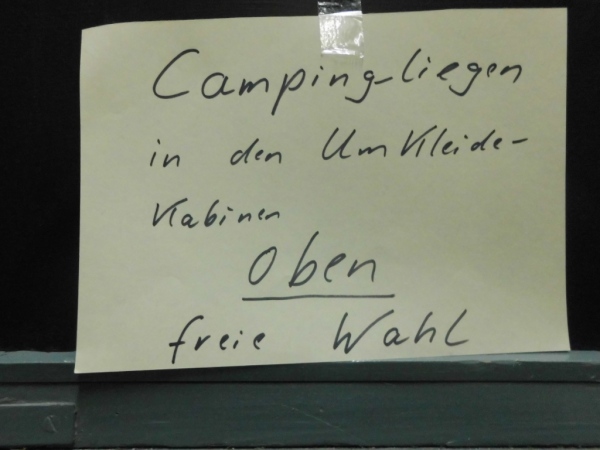 Camping-liegen
in den Umkleide-
Kabinen
Oben
freie Wahl